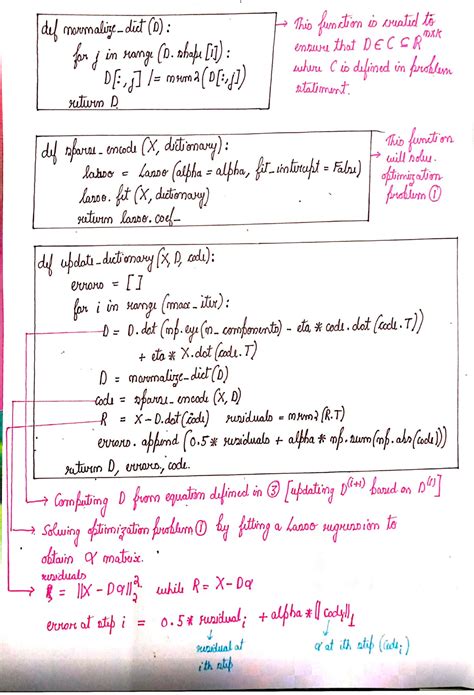 def normalize_dict(D):
for j in range (D.shape[1]):
D[:,j] /= nrm2(D[:,j])
return D
→ This function is created to
ensure that D ∈ C ⊆ ℝ^{m×k}
where C is defined in problem
statement.
def sparse_encode (X, dictionary):
lasso = Lasso (alpha = alpha, fit_intercept = False)
lasso.fit (X, dictionary)
return lasso.coef_
This function
→ will solve
optimization
problem ①
def update_dictionary (X, D, code):
errors = [ ]
for i in range (max_iter):
D = D.dot (np.eye(n_components) - eta * code.dot (code.T))
+ eta * X.dot (code.T)
D = normalize_dict(D)
code = sparse_encode (X, D)
R = X - D.dot(code) residuals = nrm2 (R.T)
errors.append (0.5 * residuals + alpha * np.sum(np.abs(code)))
return D, errors, code.
→ Computing D from equation defined in ③ [updating D^{(i+1)} based on D^{(i)}]
→ Solving optimization problem ① by fitting a Lasso regression to
obtain α matrix.
residuals
= ||X - Dα||²₂ while R = X - Dα
error at step i = 0.5 * residual_i + alpha * || code_i ||₁
residual at
ith step
α at ith step (code_i)